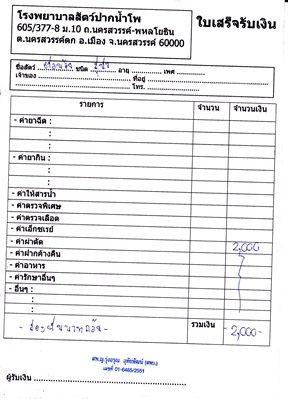 โรงพยาบาลสัตว์ปากน้ำโพ
ใบเสร็จรับเงิน
605/377-8 ม.10 ถ.นครสวรรค์-พหลโยธิน
ต.นครสวรรค์ตก อ.เมือง จ.นครสวรรค์ 60000
ชื่อสัตว์ ชนิด อายุ เพศ
เจ้าของ ที่อยู่
โทร.
รายการ จำนวน จำนวนเงิน
- ค่ายาฉีด :
:
:
- ค่ายากิน :
:
:
- ค่าให้สารน้ำ
- ค่าตรวจพิเศษ
- ค่าตรวจเลือด
- ค่าเอ็กซเรย์
- ค่าผ่าตัด 2,000
- ค่าฝากค้างคืน
- ค่าอาหาร
- ค่ารักษาอื่นๆ
- อื่นๆ :
:
:
- สองพันบาทถ้วน - รวมเงิน - 2,000 -
เลขที่ 01-6485/2551
ผู้รับเงิน